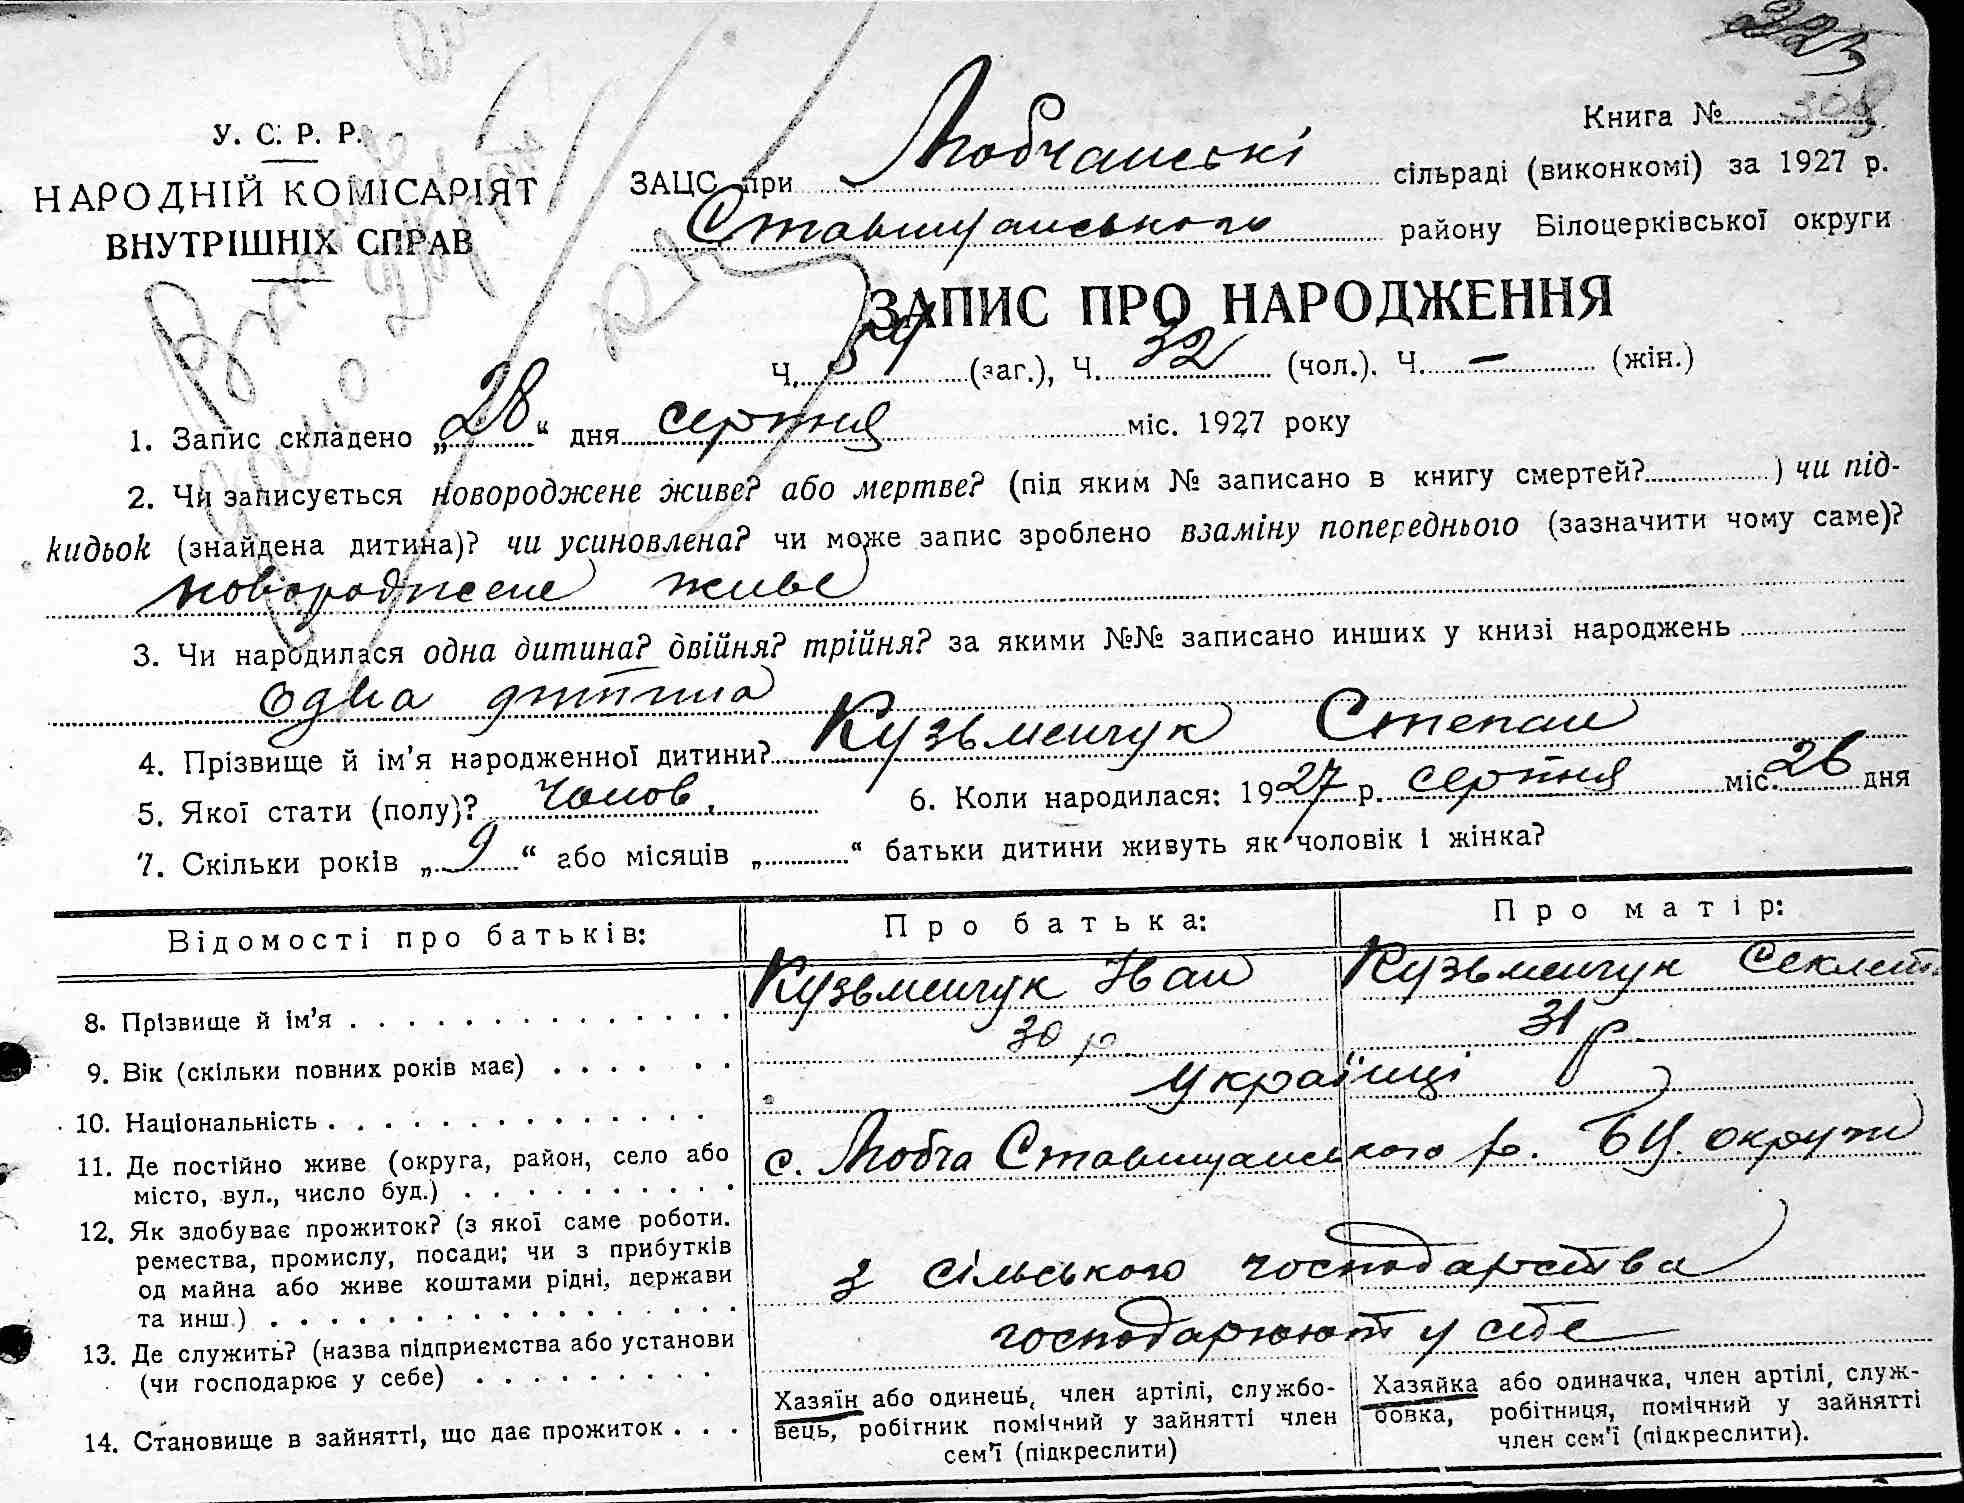 223
308
Книга №
У. С. Р. Р.
НАРОДНІЙ КОМІСАРІЯТ
ВНУТРІШНІХ СПРАВ
ЗАЦС при Любчанські сільраді (виконкомі) за 1927 р.
Ставищанського району Білоцерківської округи
ЗАПИС ПРО НАРОДЖЕННЯ
Ч. (заг.), Ч. 32 (чол.). Ч. — (жін.)
1. Запис складено „28“ дня серпня міс. 1927 року
2. Чи записується новороджене живе? або мертве? (під яким № записано в книгу смертей? ) чи під-
кидьок (знайдена дитина)? чи усиновлена? чи може запис зроблено взаміну попереднього (зазначити чому саме)?
новороджене живе
3. Чи народилася одна дитина? двійня? трійня? за якими №№ записано инших у книзі народжень
одна дитина
4. Прізвище й ім’я народженної дитини? Кузьменчук Степан
5. Якої стати (полу)? чолов. 6. Коли народилася: 1927 р. серпня міс. 26 дня
7. Скільки років „9“ або місяців „ “ батьки дитини живуть як чоловік і жінка?
Відомості про батьків: Про батька: Про матір:
8. Прізвище й ім’я Кузьменчук Іван Кузьменчук Секлета
9. Вік (скільки повних років має) 30 р. 31 р.
10. Національність українці
11. Де постійно живе (округа, район, село або
місто, вул., число буд.) с. Любча Ставищанського р. БЦ. округи
12. Як здобуває прожиток? (з якої саме роботи.
ремества, промислу, посади; чи з прибутків
од майна або живе коштами рідні, держави
та инш.) з сільського господарства
13. Де служить? (назва підприємства або установи
(чи господарює у себе) господарюють у себе
14. Становище в зайнятті, що дає прожиток
Хазяїн або одинець, член артілі, службо-
вець, робітник помічний у зайнятті член
сем’ї (підкреслити)
Хазяйка або одиначка, член артілі, служ-
бовка, робітниця, помічний у зайнятті
член сем’ї (підкреслити).